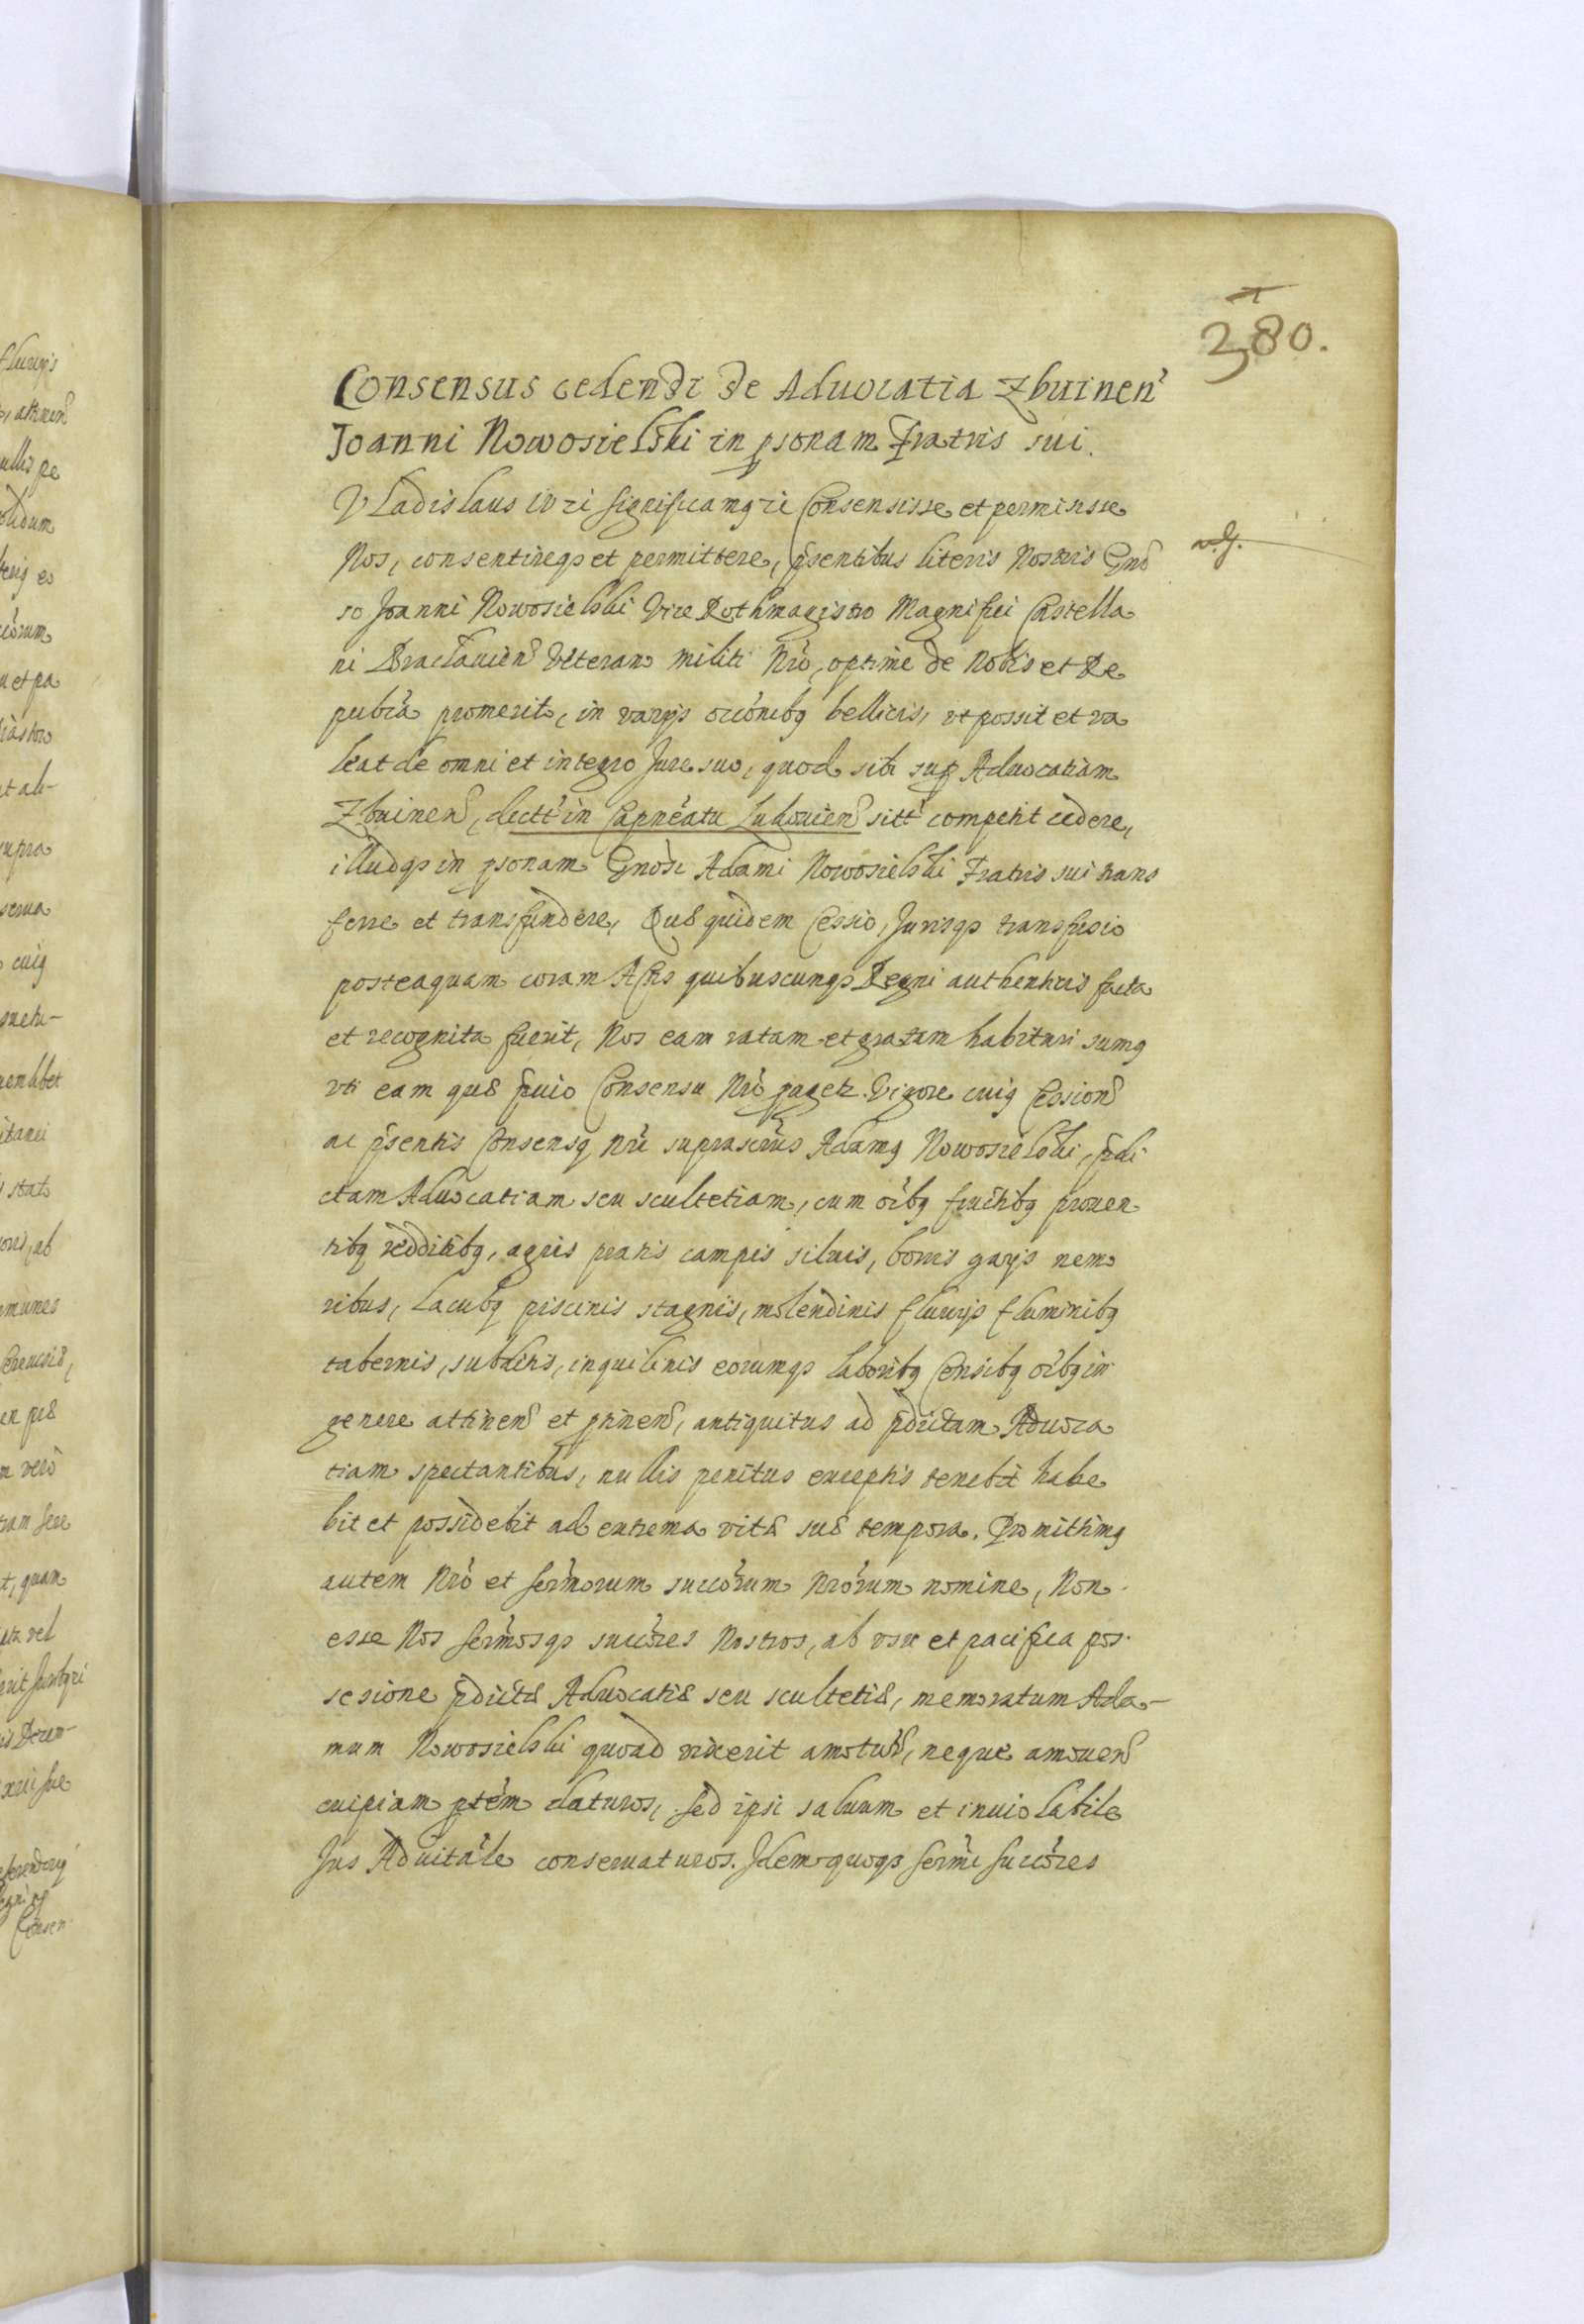 380.
Consensus cedendi de Aduocatia Zbuinen̄
Joanni Nowosielski in psonam Fratris sui.
Vladislaus IV &c. Significamq &c. Consensisse et permisisse
Nos, consentireqз et permittere, p̄sentibus literis Nostris Gnō
so Joanni Nowosielski Vice Rothmagistro Magnifici Castella
ni Braclauien̄ Veterano militi Nr̄o, optime de Nobis et Re
publ̄a promerito, in varijs occ̄onibq bellicis, vt possit et va
leat de omni et integro Jure suo, quod sibi sup Aduocatiam
Zbuinen̄, dictā in Capnēatu Ludouien̄ sitā competit cedere,
illudqз in psonam Gnōsi Adami Nowosielski Fratris sui trans
ferre et transfundere, Quæ quidem Cessio, Jurisqз transfusio
posteaquam coram Actis quibuscunqз Regni authenticis facta
et recognita fuerit, Nos eam ratam et gratam habituri sumq
vti eam quæ p̄uio Consensu Nr̄o pagetr. Vigore cuiq Cession̄
ac p̄sentis Consensq Nr̄i suprascr̄tus Adamq Nowosielski, p̄di
ctam Aduocatiam seu scultetiam, cum oībq fructibq prouen
tibq redditibq, agris pratis campis siluis, borris gaijs nemo
ribus, lacubq piscinis stagnis, molendinis fluuijs fluminibq
tabernis, subditis, inquilinis eorumqз laboribq Censibq oībq in
genere attinen̄ et ptinen̄, antiquitus ad p̄dictam Aduoca
tiam spectantibus, nullis penitus exceptis tenebit habe
bit et possidebit ad extrema vitæ suæ tempora. Promittimq
autem Nr̄o et Serm̄orum succ̄orum Nr̄orum nomine, Non
esse Nos Serm̄osqз succ̄ores Nostros, ab vsu et pacifica pos
sesione p̄dictæ Aduocatiæ seu scultetiæ, memoratum Ada-
mum Nowosielski quoad vixerit amoturos, neque amouen̄
cuipiam ptēm daturos, Sed ipsi saluum et inuiolabile
Jus Aduitale conseruaturos. Idemqз quoqз Serm̄i Succ̄ores